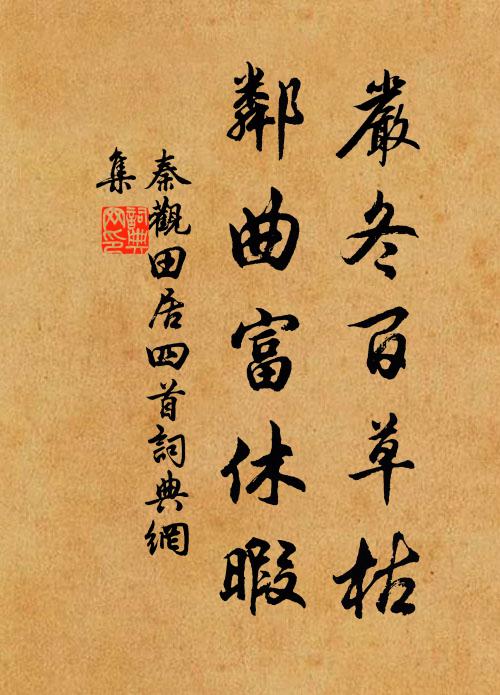 嚴冬百草枯
鄰曲富休暇
秦觀田居四首詞典網
集
詞典
网印